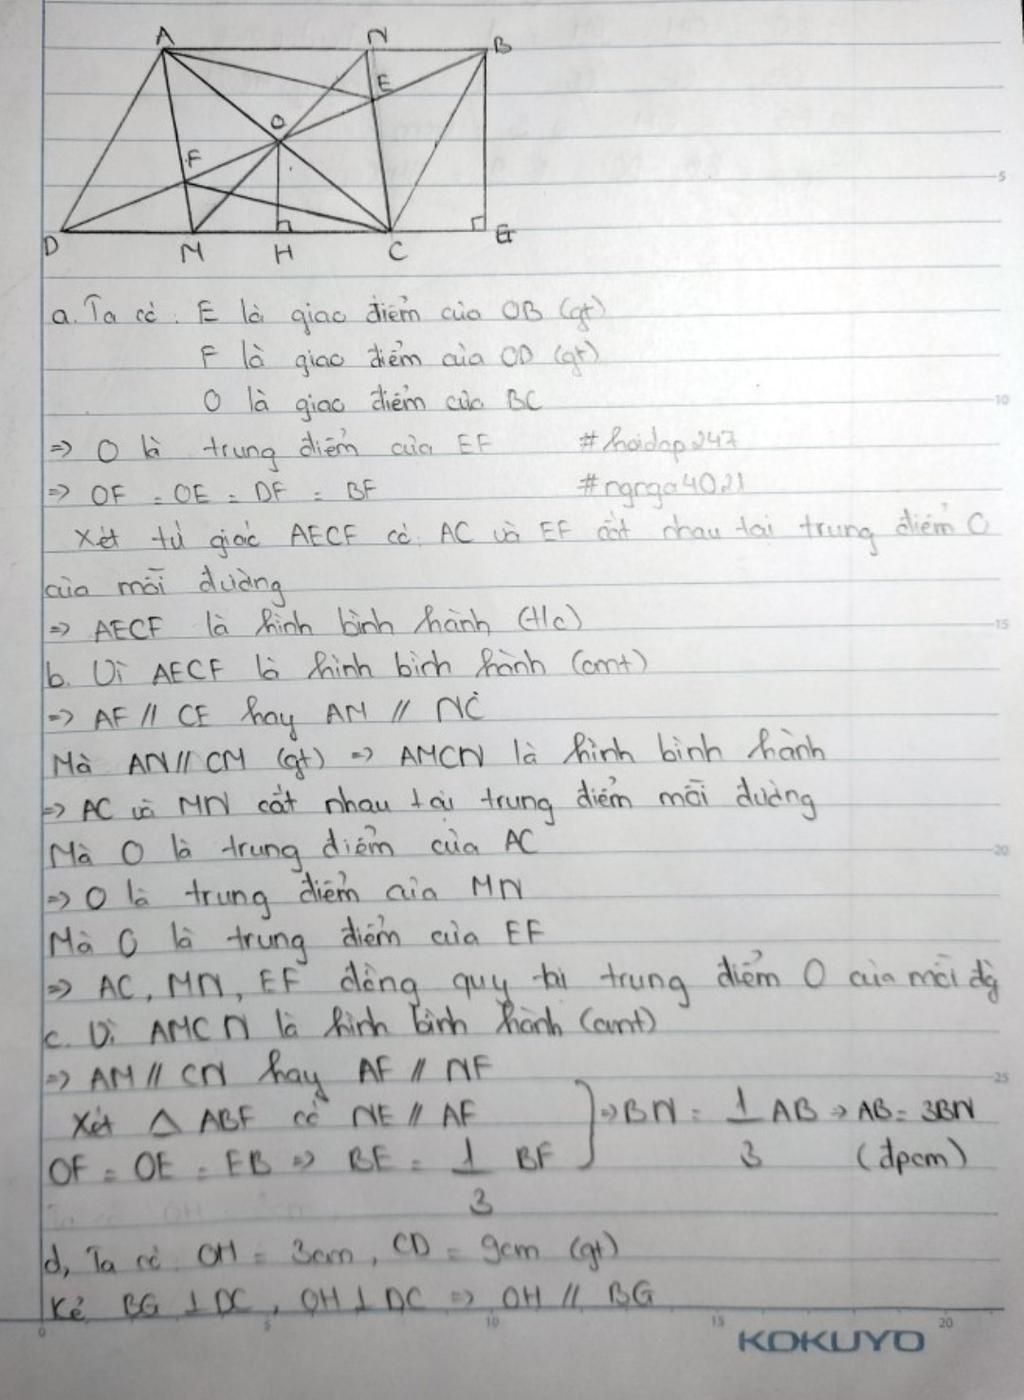 A N B
E
O
F
D M H C G
a. Ta có: E là giao điểm của OB (gt)
F là giao điểm của OD (gt)
O là giao điểm của BC
=> O là trung điểm của EF #hoidap247
=> OF = OE = DF = BF #ngnga4021
Xét tứ giác AECF có: AC và EF cắt nhau tại trung điểm O
của mỗi đường
=> AECF là hình bình hành (t/c)
b. Vì AECF là hình bình hành (cmt)
=> AF // CE hay AM // NC
Mà AN // CM (gt) => AMCN là hình bình hành
=> AC và MN cắt nhau tại trung điểm mỗi đường
Mà O là trung điểm của AC
=> O là trung điểm của MN
Mà O là trung điểm của EF
=> AC, MN, EF đồng quy tại trung điểm O của mỗi đg
c. Vì AMCN là hình bình hành (cmt)
=> AM // CN hay AF // NF
Xét △ ABF có NE // AF
OF = OE = EB => BE = 1/3 BF } => BN = 1/3 AB => AB = 3BN
(đpcm)
d, Ta có OH = 3cm, CD = 9cm (gt)
Kẻ BG ⊥ DC, OH ⊥ DC => OH // BG
5
10
15
20
25
0 5 10 15 20
KOKUYO